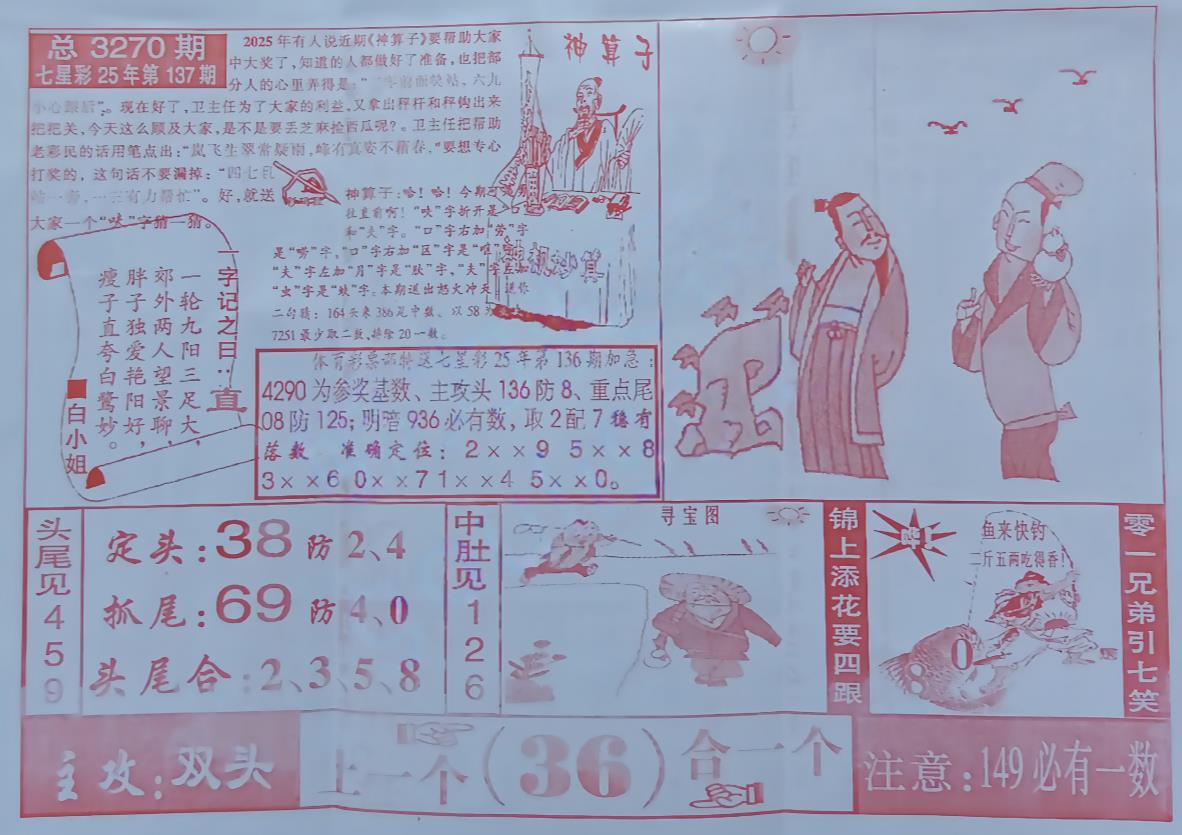 总 3270 期
七星彩 25 年第 137 期
2025 年有人说近期《神算子》要帮助大家
中大奖了，知道的人都做好了准备，也把部
分人的心里弄得是：“
小心跟后”。现在好了，卫主任为了大家的利益，又拿出秤杆和秤钩出来
把把关，今天这么顾及大家，是不是要丢芝麻捡西瓜呢？。卫主任把帮助
老彩民的话用笔点出：“岚飞生翠常疑雨，峰有真姿不藉春，”要想专心
打奖的，这句话不要漏掉：“四七
”。好，就送
大家一个“呋”字猜一猜。
神算子
神算子：哈！哈！今期可
往直前啊！“呋”字折开是“口”
和“夫”字。“口”字右加“劳”字
是“唠”字，“口”字右加“区”字是“呕”
“夫”字左加“月”字是“肤”字，“夫”字左加
“虫”字是“蚨”字。本期送出怒火冲天，送你
二句诗：164头来386尾中数、以58为
7251最少取二数，排除20一数。
神机妙算
一字记之曰：直
一轮九阳三足大，
郊外两人望景聊，
胖子独爱艳阳好，
瘦子直夸白鹭妙。
白小姐
体育彩票部特送七星彩 25 年第 136 期加急：
4290 为参奖基数、主攻头 136 防 8、重点尾
08 防 125；明暗 936 必有数，取 2 配 7 稳有
落数 准确定位：2××9 5××8
3××6 0××7 1××4 5××0。
头尾见459
定头：38 防 2、4
抓尾：69 防 4、0
头尾合：2、3、5、8
中肚见126
寻宝图
锦上添花要四跟
鱼来快钓
二斤五两吃得香！
8 0
零一兄弟引七笑
主攻：双头
上一个（36）合一个
注意：149 必有一数